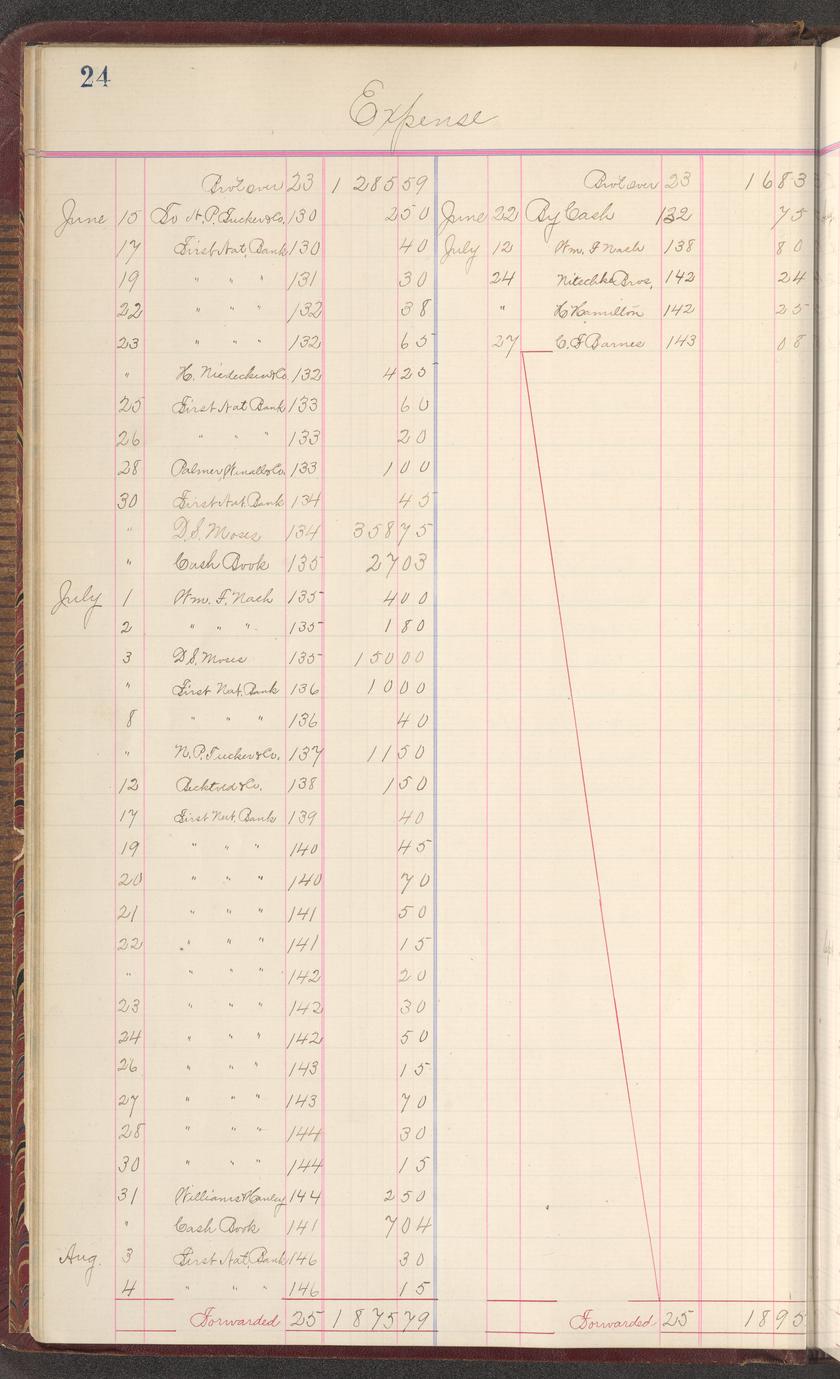 24
Expense
Bro't over 23 1 285 59
June 15 To N. P. Tucker & Co. 130 2 50
17 First Nat. Bank 130 40
19 " " " 131 30
22 " " " 132 38
23 " " " 132 65
" H. Niedecken & Co 132 4 25
25 First Nat Bank 133 60
26 " " " 133 20
28 Palmer, Winall & Co. 133 1 00
30 First Nat. Bank 134 45
" D. S. Moses 134 358 75
" Cash Book 135 27 03
July 1 Wm. F. Nash 135 4 00
2 " " " 135 1 80
3 D. S. Moses 135 150 00
" First Nat. Bank 136 10 00
8 " " " 136 40
" N. P. Tucker & Co. 137 11 50
12 & Co. 138 1 50
17 First Nat. Bank 139 40
19 " " " 140 45
20 " " " 140 70
21 " " " 141 50
22 " " " 141 15
" " " " 142 20
23 " " " 142 30
24 " " " 142 50
26 " " " 143 15
27 " " " 143 70
28 " " " 144 30
30 " " " 144 15
31 Williams & Hanley 144 2 50
" Cash Book 141 7 04
Aug. 3 First Nat. Bank 146 30
4 " " " 146 15
Forwarded 25 1 875 79
Bro't over 23 16 83
June 22 By Cash 132 75
July 12 Wm. F. Nash 138 80
24 Nitschke Bros. 142 24
" H. Hamilton 142 25
27 C. F. Barnes 143 08
Forwarded 25 18 95